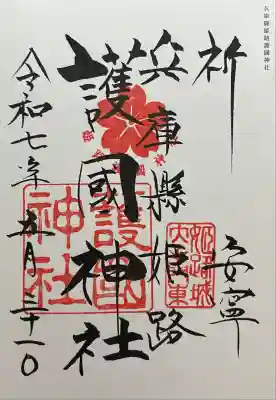 兵庫縣姫路護國神社
祈 安寧
兵庫縣姫路
護國神社
令和七年五月三十一〇
護國
神社
姫路城
大東